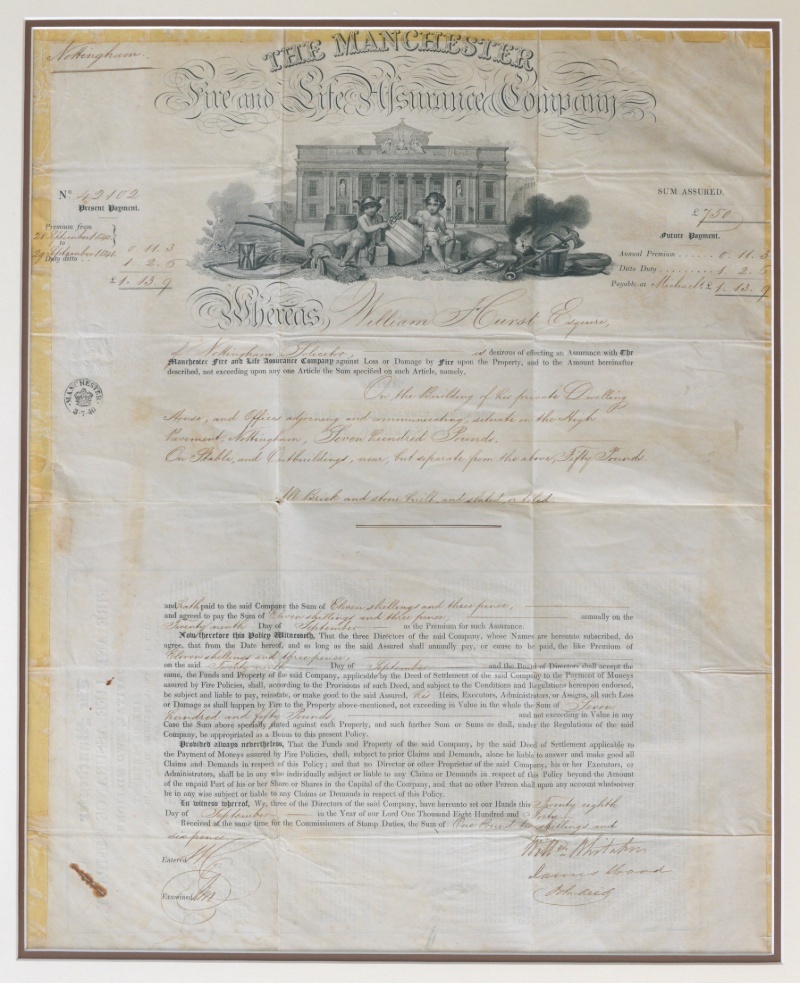 Nottingham.
THE MANCHESTER
Fire and Life Assurance Company
No 42102
Present Payment.
Premium from
28 September 1840
to
29 September 1841
0. 11. 3
Duty ditto
1. 2. 6
£ 1. 13. 9
SUM ASSURED.
£750
Future Payment.
Annual Premium ....... 0. 11. 3
Ditto Duty ........ 1. 2. 6
Payable at Michael's £ 1. 13. 9
Whereas, William Hurst Esquire,
of Nottingham, Solicitor, is desirous of effecting an Assurance with The
Manchester Fire and Life Assurance Company against Loss or Damage by Fire upon the Property, and to the Amount hereinafter
described, not exceeding upon any one Article the Sum specified on such Article, namely,
MANCHESTER
3-7-40
On the Building of his private Dwelling
House, and Offices adjoining and communicating, situate in the High
Pavement, Nottingham, Seven hundred Pounds.
On Stable, and Outbuildings, near, but separate from the above, Fifty Pounds.
All Brick and stone built, and slated, or tiled
and hath paid to the said Company the Sum of Eleven shillings and three pence,
and agreed to pay the Sum of Eleven shillings and three pence, annually on the
Twenty ninth Day of September as the Premium for such Assurance.
Now therefore this Policy Witnesseth, That the three Directors of the said Company, whose Names are hereunto subscribed, do
agree, that from the Date hereof, and so long as the said Assured shall annually pay, or cause to be paid, the like Premium of
Eleven shillings and three pence,
on the said Twenty ninth Day of September and the Board of Directors shall accept the
same, the Funds and Property of the said Company, applicable by the Deed of Settlement of the said Company to the Payment of Moneys
assured by Fire Policies, shall, according to the Provisions of such Deed, and subject to the Conditions and Regulations hereupon endorsed,
be subject and liable to pay, reinstate, or make good to the said Assured, his Heirs, Executors, Administrators, or Assigns, all such Loss
or Damage as shall happen by Fire to the Property above-mentioned, not exceeding in Value in the whole the Sum of Seven
hundred and fifty Pounds, and not exceeding in Value in any
Case the Sum above specially stated against each Property, and such further Sum or Sums as shall, under the Regulations of the said
Company, be appropriated as a Bonus to this present Policy.
Provided always nevertheless, That the Funds and Property of the said Company, by the said Deed of Settlement applicable to
the Payment of Moneys assured by Fire Policies, shall, subject to prior Claims and Demands, alone be liable to answer and make good all
Claims and Demands in respect of this Policy; and that no Director or other Proprietor of the said Company, his or her Executors, or
Administrators, shall be in any wise individually subject or liable to any Claims or Demands in respect of this Policy beyond the Amount
of the unpaid Part of his or her Share or Shares in the Capital of the Company, and that no other Person shall upon any account whatsoever
be in any wise subject or liable to any Claims or Demands in respect of this Policy.
In witness whereof, We, three of the Directors of the said Company, have hereunto set our Hands this Twenty eighth
Day of September in the Year of our Lord One Thousand Eight Hundred and Forty
Received at the same time for the Commissioners of Stamp Duties, the Sum of One Pound two shillings and
six pence
Entered
Examined
James Wood